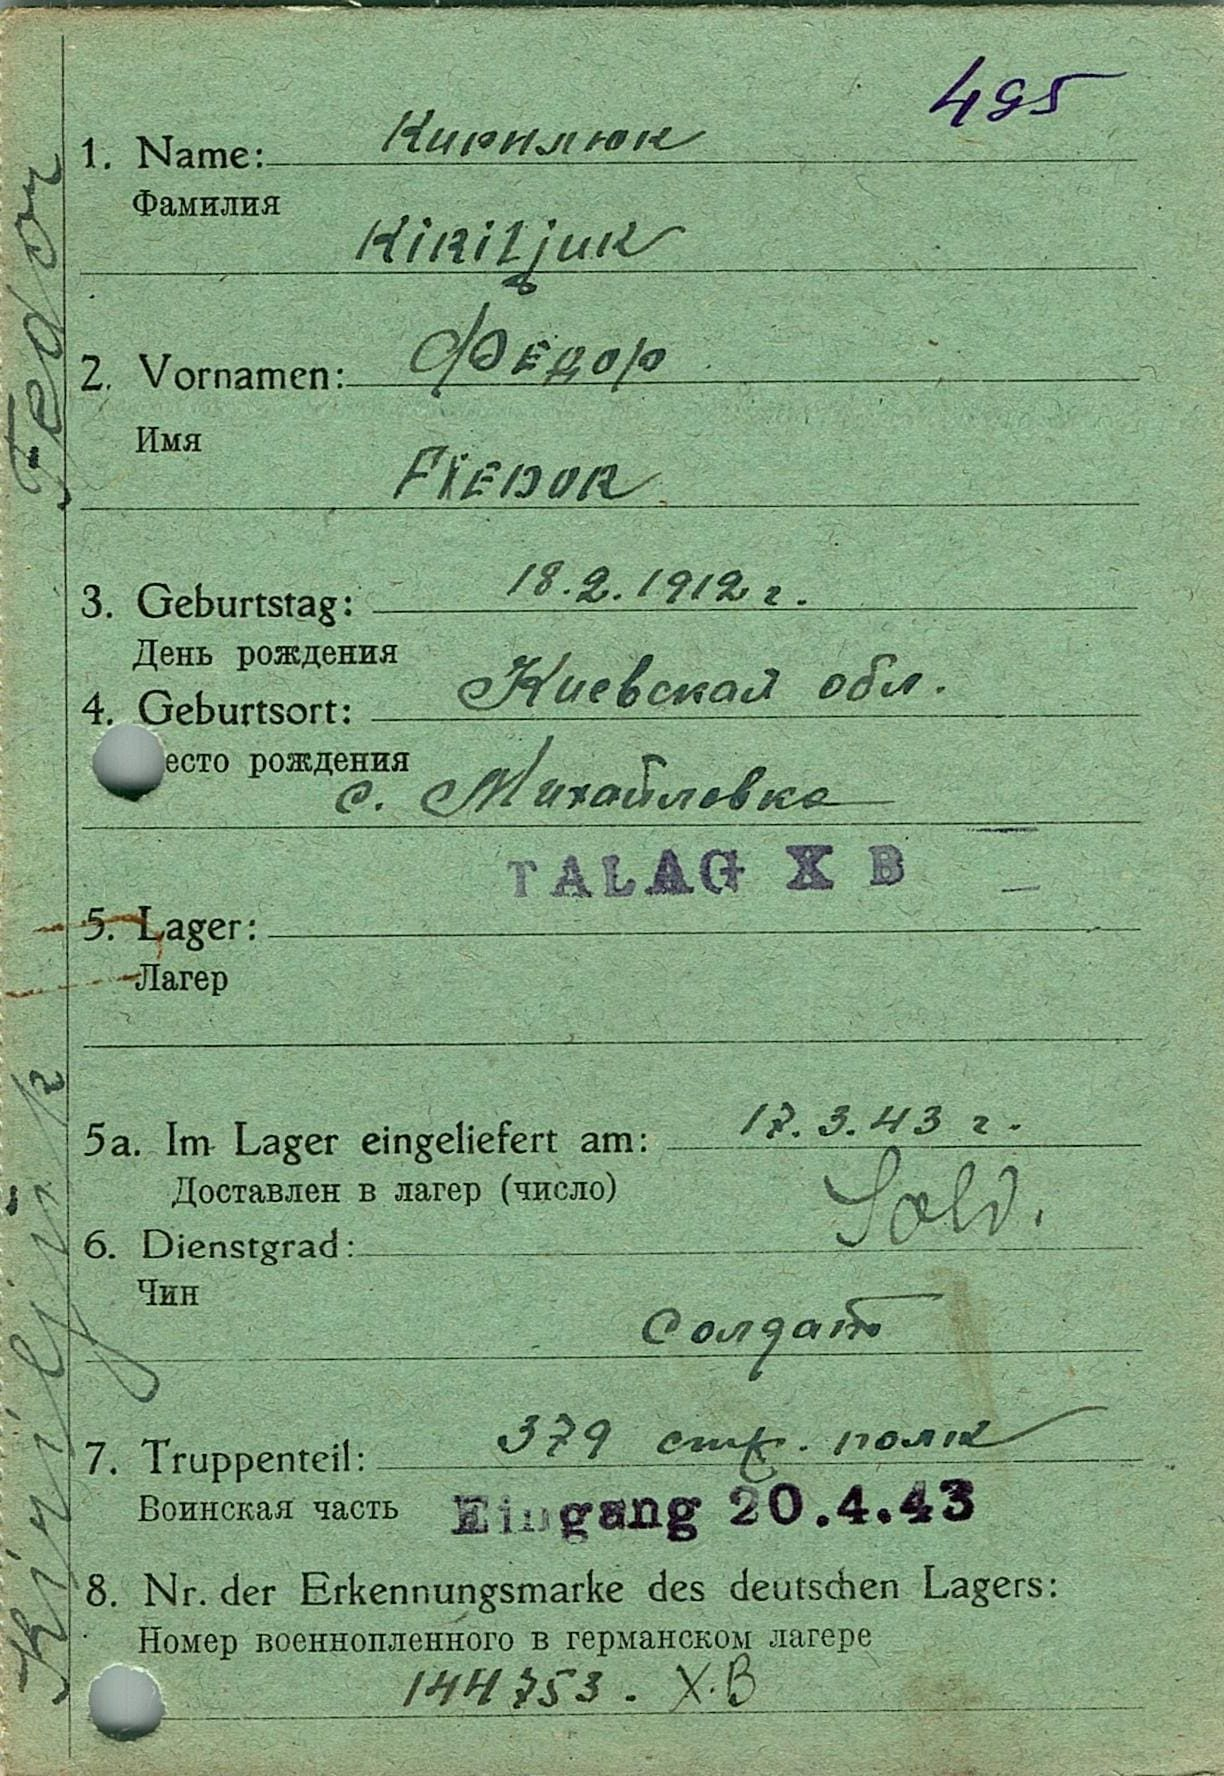 495
1. Name: Кирилюк
Фамилия
Kiriljuk
2. Vornamen: Федор
Имя
FIEDOR
3. Geburtstag: 18.2.1912 г.
День рождения
4. Geburtsort: Киевская обл.
есто рождения
с. Михайловка
TALAG X B
5. Lager:
Лагер
5a. Im Lager eingeliefert am: 17.3.43 г.
Доставлен в лагер (число)
Sold.
6. Dienstgrad:
Чин
солдат
7. Truppenteil: 379 стр. полк
Воинская часть
Eingang 20.4.43
8. Nr. der Erkennungsmarke des deutschen Lagers:
Номер военнопленного в германском лагере
144753. X.B
Kiriljuk Fedor